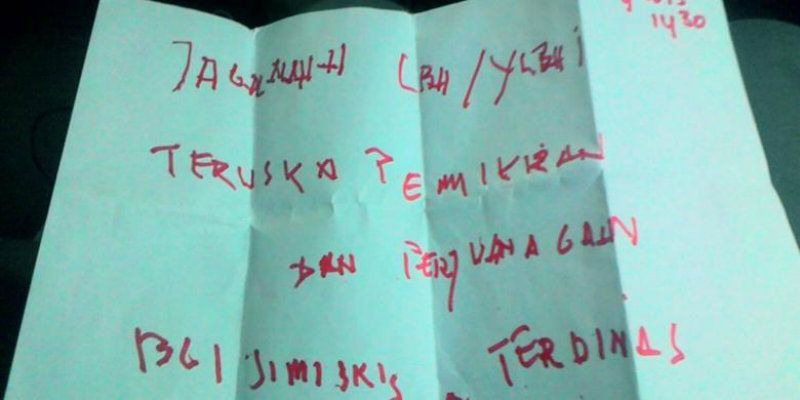 1430
LBH/YLBHI
TERUSKA PEMIKIRAN
DAN PERJUANAGAN
BGI SIMISKIS TERDINAS